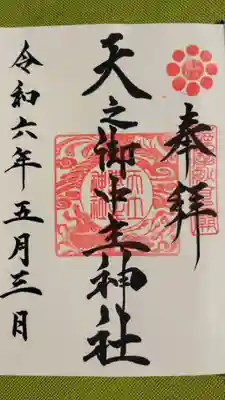 奉拝
天之御中主神社
令和六年五月三日